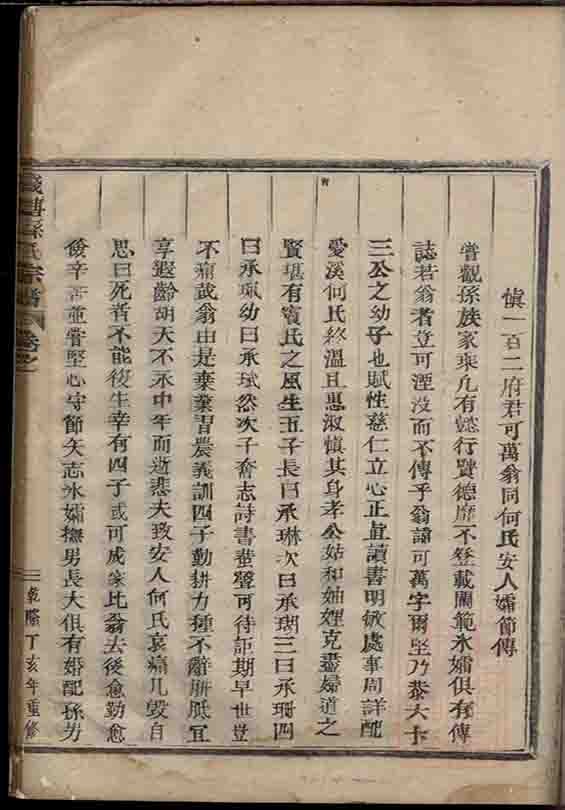 慎一百二府君可萬翁同何氏安人孀節傳
嘗觀孫族家乘凡有懿行賢德靡不登載閫範氷孀俱有傳
誌若翁者豈可湮没而不傳乎翁諱可萬字爾堅乃恭六十
三公之幼子也賦性慈仁立心正直讀書明敏處事周詳配
愛溪何氏終溫且惠淑慎其身孝公姑和妯娌克盡婦道之
賢堪有賓氏之風生五子長曰承琳次曰承瑚三曰承珊四
曰承珮幼曰承珷然次子奮志詩書蜚聲可待詎期早世豈
不痛哉翁由是棄業習農義訓四子勤耕力種不辭胼胝宜
享遐齡胡天不永中年而逝悲夫致安人何氏哀痛几毀自
思曰死者不能復生幸有四子或可成家比翁去後愈勤愈
儉辛苦重嘗堅心守節矢志氷孀撫男長大俱有婚配孫男
孫氏宗譜 卷之一
乾隆丁亥年重修